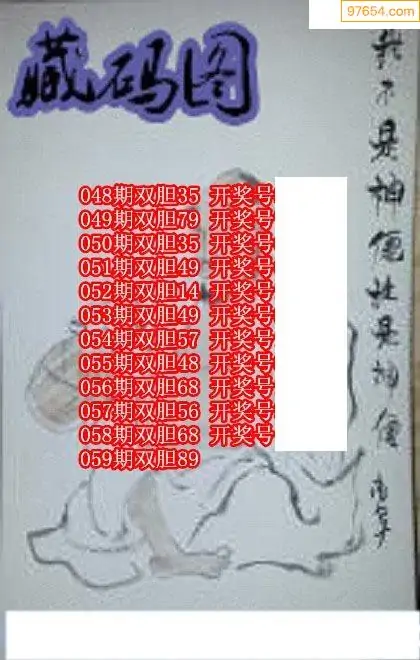 97654.com
藏码图
048期双胆35 开奖号
049期双胆79 开奖号
050期双胆35 开奖号
051期双胆49 开奖号
052期双胆14 开奖号
053期双胆49 开奖号
054期双胆57 开奖号
055期双胆48 开奖号
056期双胆68 开奖号
057期双胆56 开奖号
058期双胆68 开奖号
059期双胆89
不是神仙
是神仙